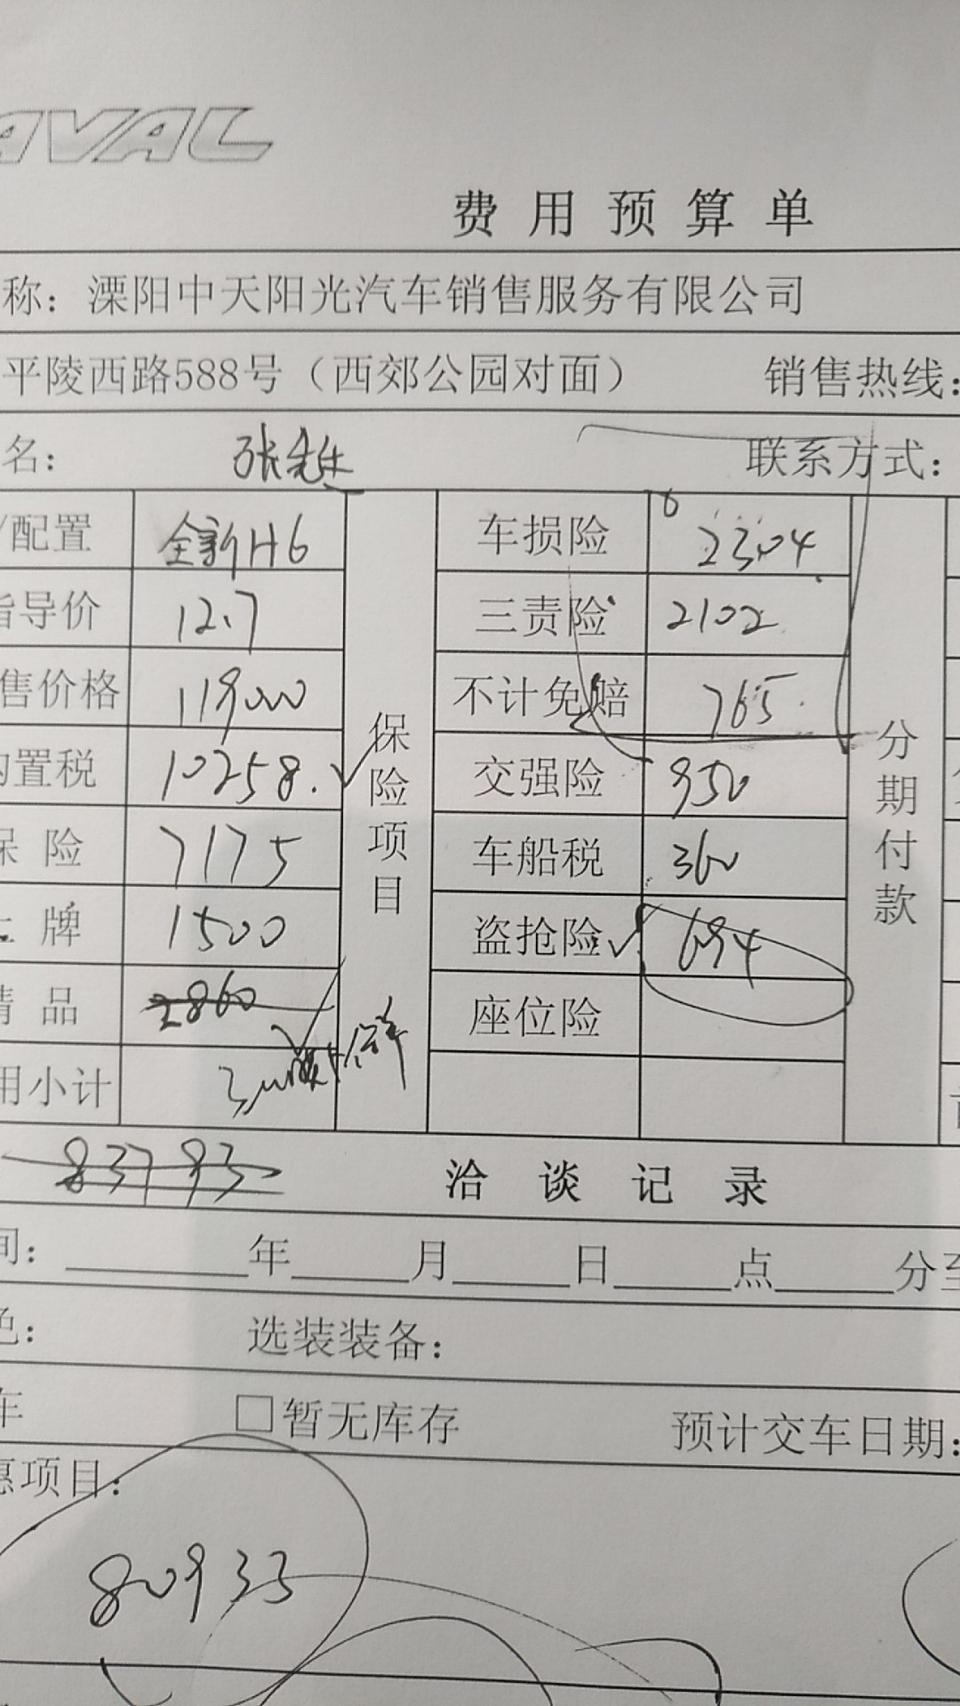 AVAL
费用预算单
称：溧阳中天阳光汽车销售服务有限公司
平陵西路588号（西郊公园对面） 销售热线：
名： 张先生 联系方式：
/配置 全新H6 车损险 2304
指导价 12.7 三责险 2102
售价格 119000 不计免赔 765
购置税 10258. 保险项目 交强险 950 分期付款
保 险 7175 车船税 360
上 牌 1500 盗抢险 694
精 品 2860 座位险
用小计
83793 洽谈记录
间： 年 月 日 点 分至
色： 选装装备：
车 □暂无库存 预计交车日期：
惠项目：
80933